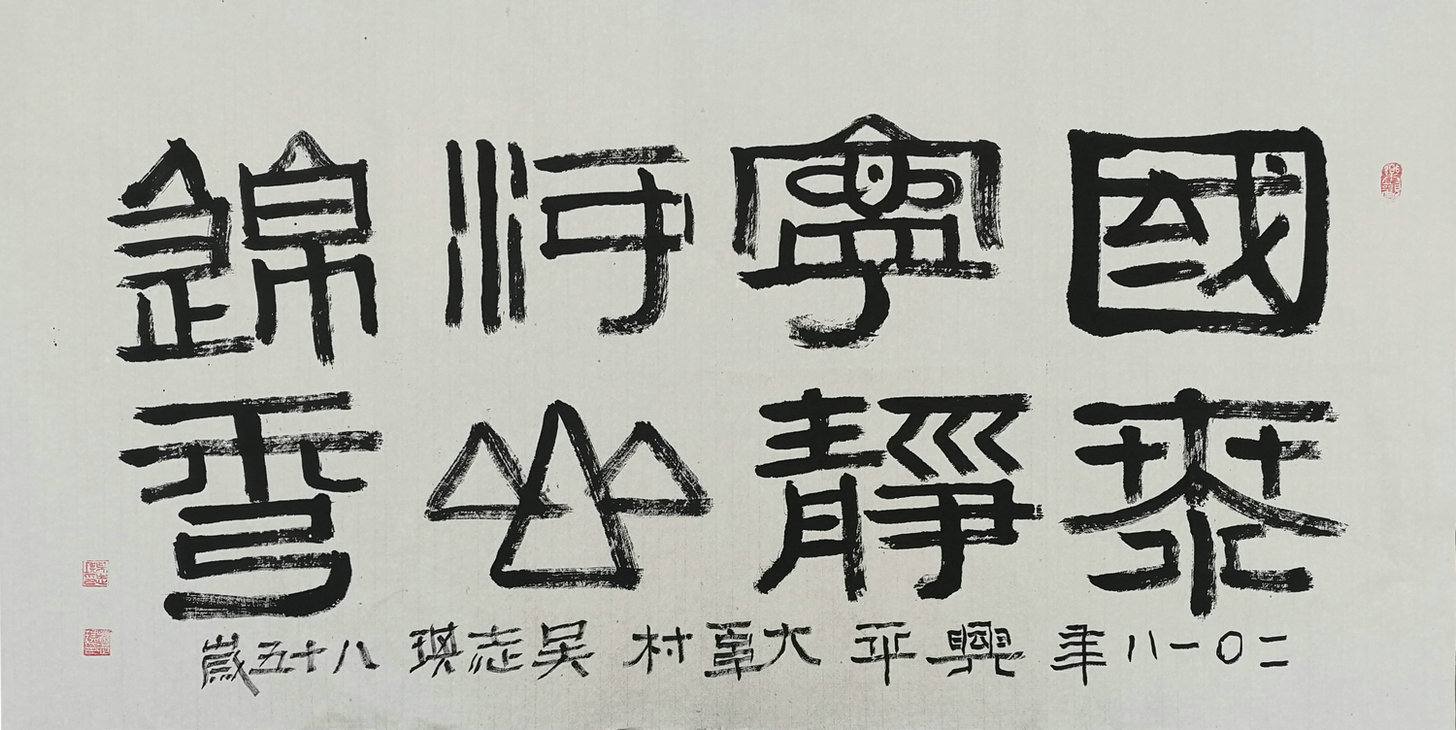 國泰
寧靜
河山
錦秀
二〇一八年 興平 大村 吳志 八十五歲